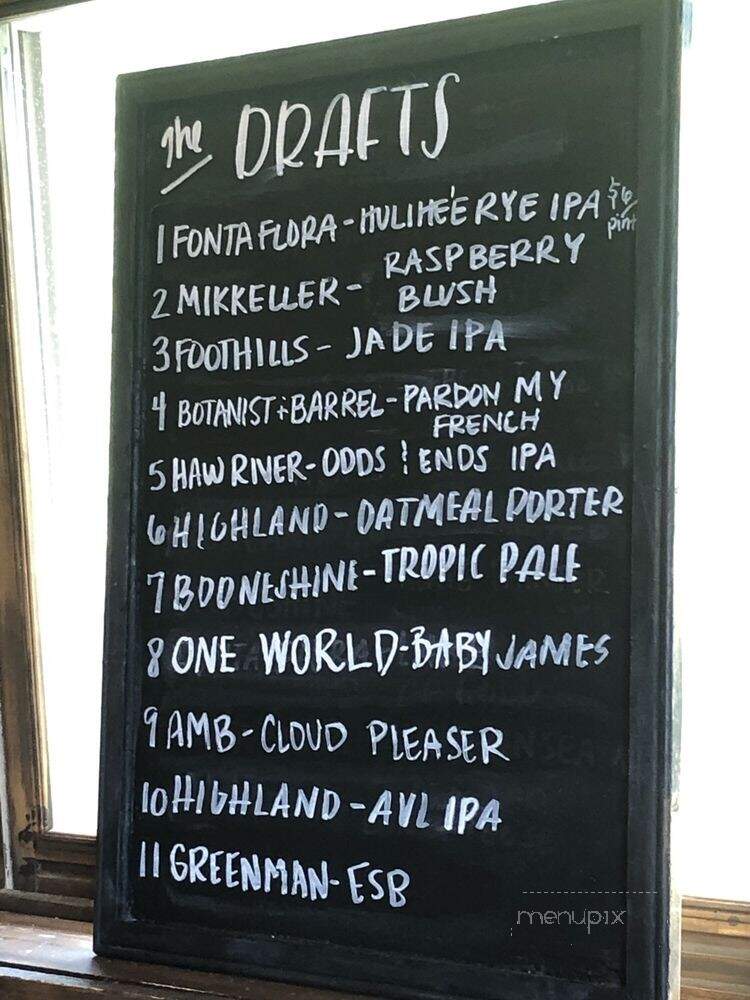 the DRAFTS
1 FONTA FLORA - HULIHE'E RYE IPA $6 pint
2 MIKKELLER - RASPBERRY
BLUSH
3 FOOTHILLS - JADE IPA
4 BOTANIST + BARREL - PARDON MY
FRENCH
5 HAW RIVER - ODDS & ENDS IPA
6 HIGHLAND - OATMEAL PORTER
7 BOONESHINE - TROPIC PALE
8 ONE WORLD - BABY JAMES
9 AMB - CLOUD PLEASER
10 HIGHLAND - AVL IPA
11 GREENMAN - ESB
menupix